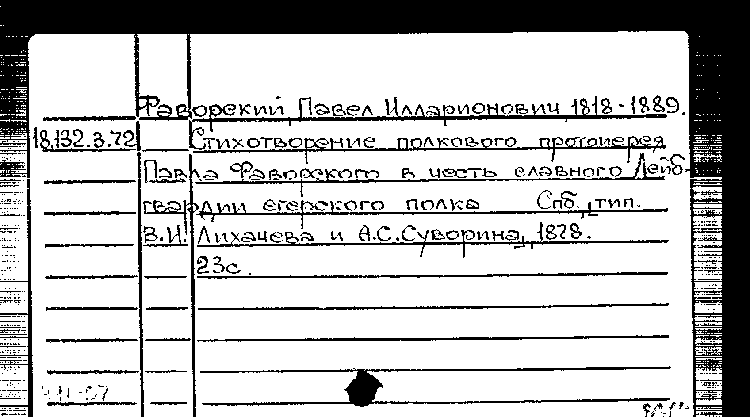 Фаворский, Павел Илларионович, 1818-1889.
18.132.3.72 Стихотворение полкового протоиерея
Павла Фаворского в честь славного Лейб-
гвардии егерского полка Спб., тип.
В.И. Лихачева и А.С. Суворина, 1878.
23с.